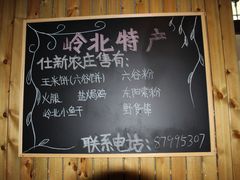 岭北特产
仕新农庄售有:
玉米饼(六谷饼) 六谷粉
火腿 盐焗鸡 东阳索粉
岭北小鱼干 野货等
联系电话: 87995307